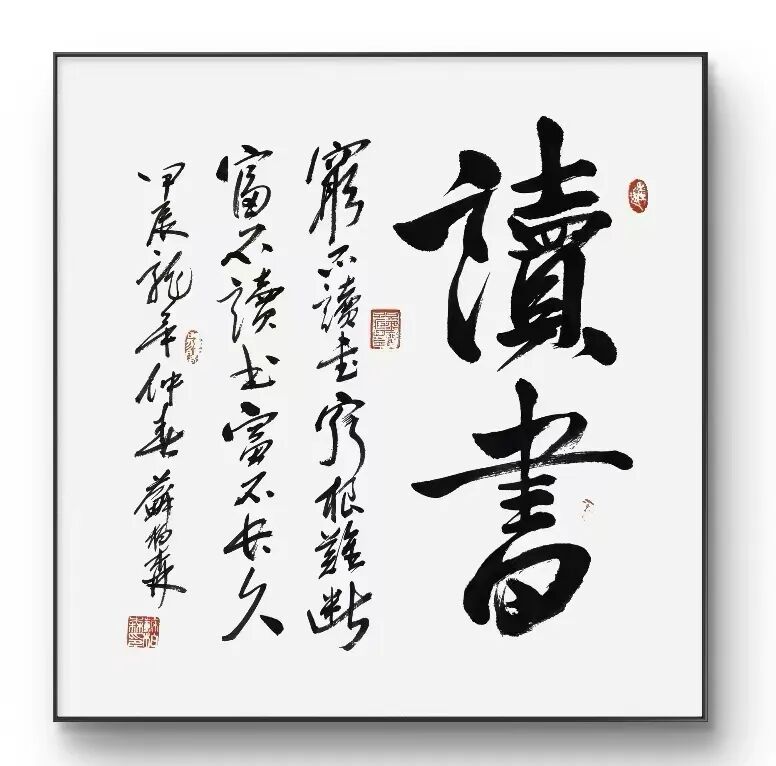 讀書
窮不讀書窮根難斷
富不讀书富不长久
甲辰龍年仲春